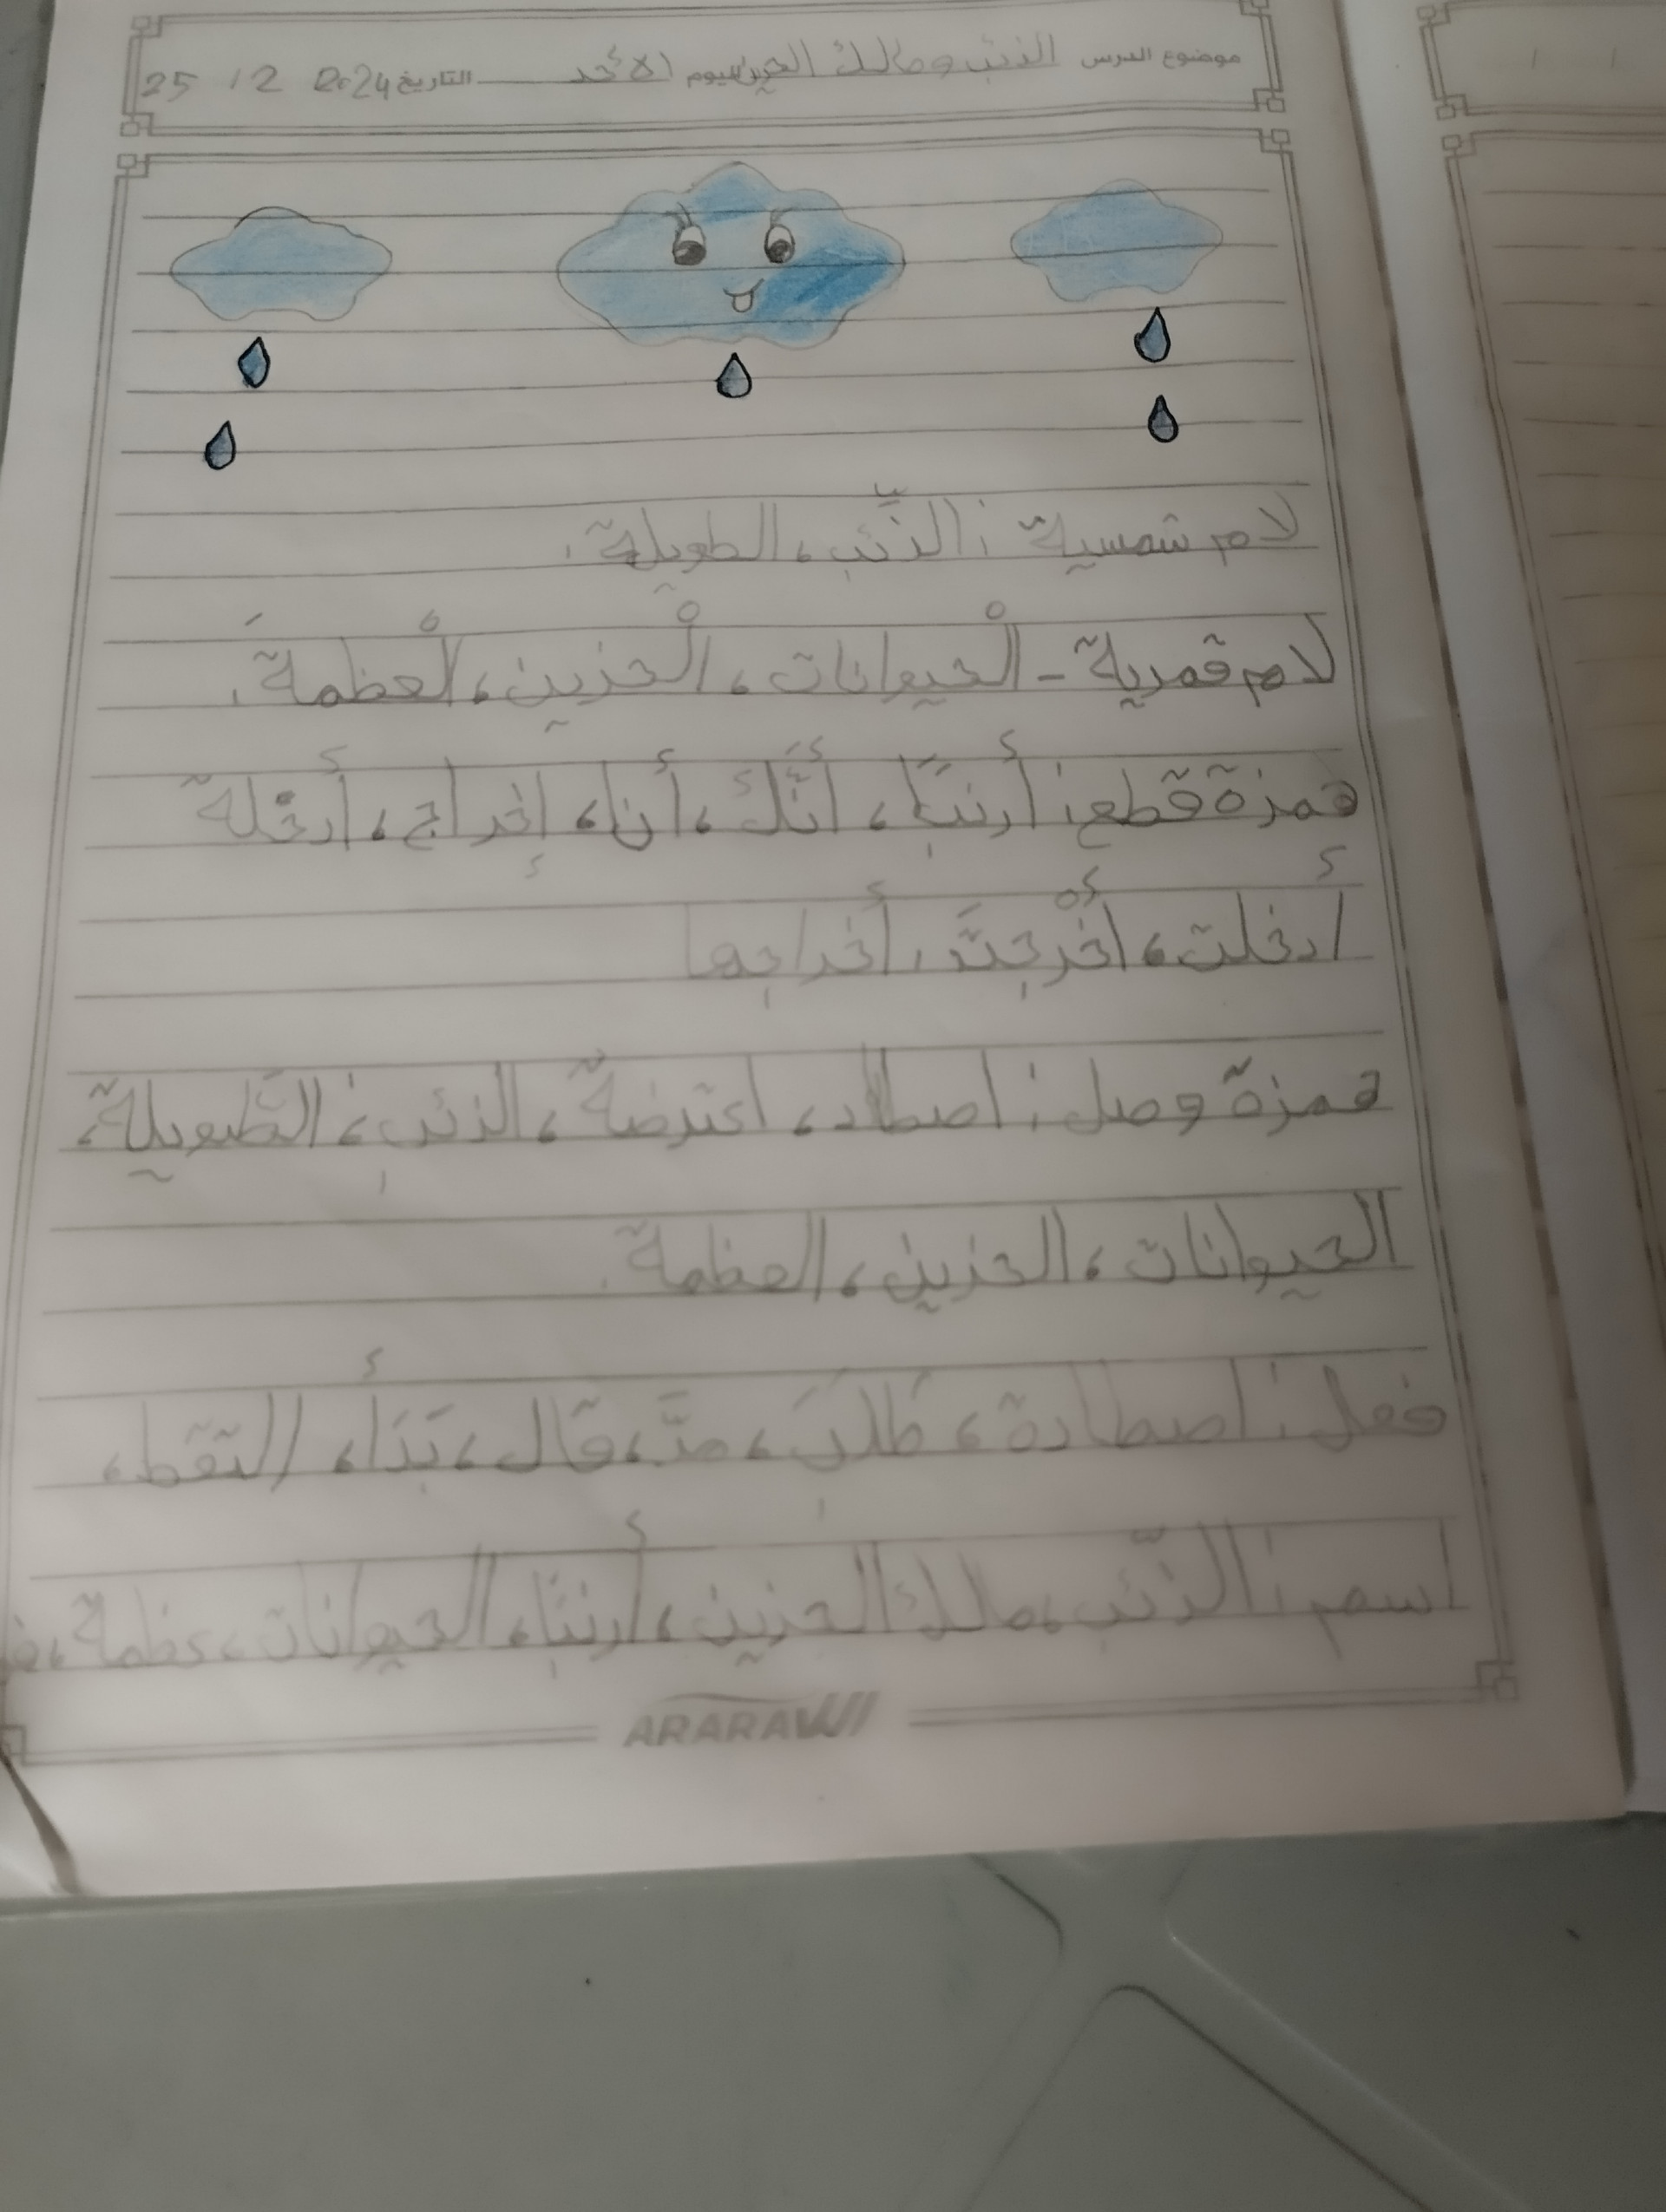 موضوع الدرس الذئب ومالك الحزين اليوم الأحد التاريخ 2024 12 25
لام شمسية : الذّئب ، الطويلة .
لام قمرية - الْحيوانات ، الْحزين ، الْعظمة .
همزة قطع : أرنبًا ، أنَّك ، أنا ، إخراج ، أدخله
أدخلت ، أخْرجتَ ، أخراجها
همزة وصل : اصطاد ، اعترضة ، الذئب ، الطَّويلة ،
الحيوانات ، الحزين ، العظمة .
فعل : اصطادة ، طَلَبَ ، مدَّ ، قال ، بَدَأَ ، التقط ،
اسم : الذّئب ، مالك الحزين ، أرنبًا ، الحيوانات ، عظمة ،
ARARAWI